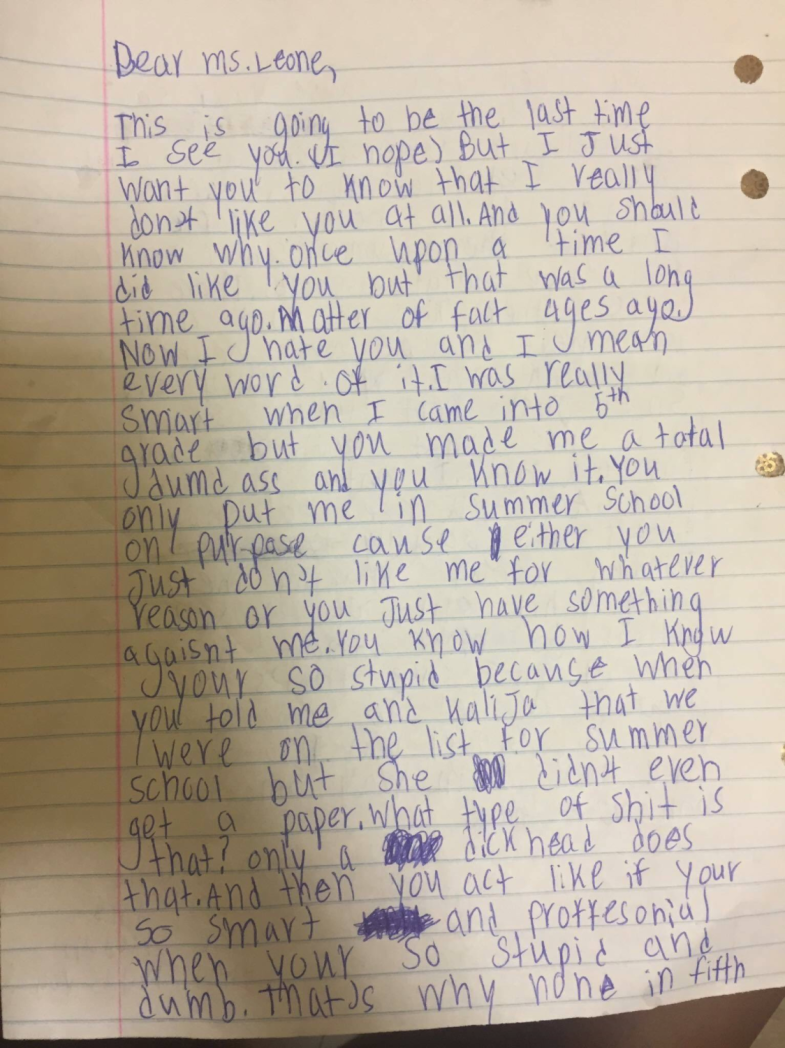 Dear Ms. Leone,
This is going to be the last time
I see you. (I hope) But I Just
want you to know that I really
don't like you at all. And you should
know why. once upon a time I
did like you but that was a long
time ago. Matter of fact ages ago.
Now I hate you and I mean
every word of it. I was really
smart when I came into 5th
grade but you made me a total
dumd ass and you know it. You
only put me in summer school
on purpose cause either you
Just don't like me for whatever
reason or you Just have something
agaisnt me. You know how I know
your so stupid because when
you told me and Kalija that we
were on the list for summer
school but she didn't even
get a paper. What type of shit is
that? only a dickhead does
that. And then you act like if your
so smart and proffesonial
when your so stupid and
dumb. That's why none in fifth